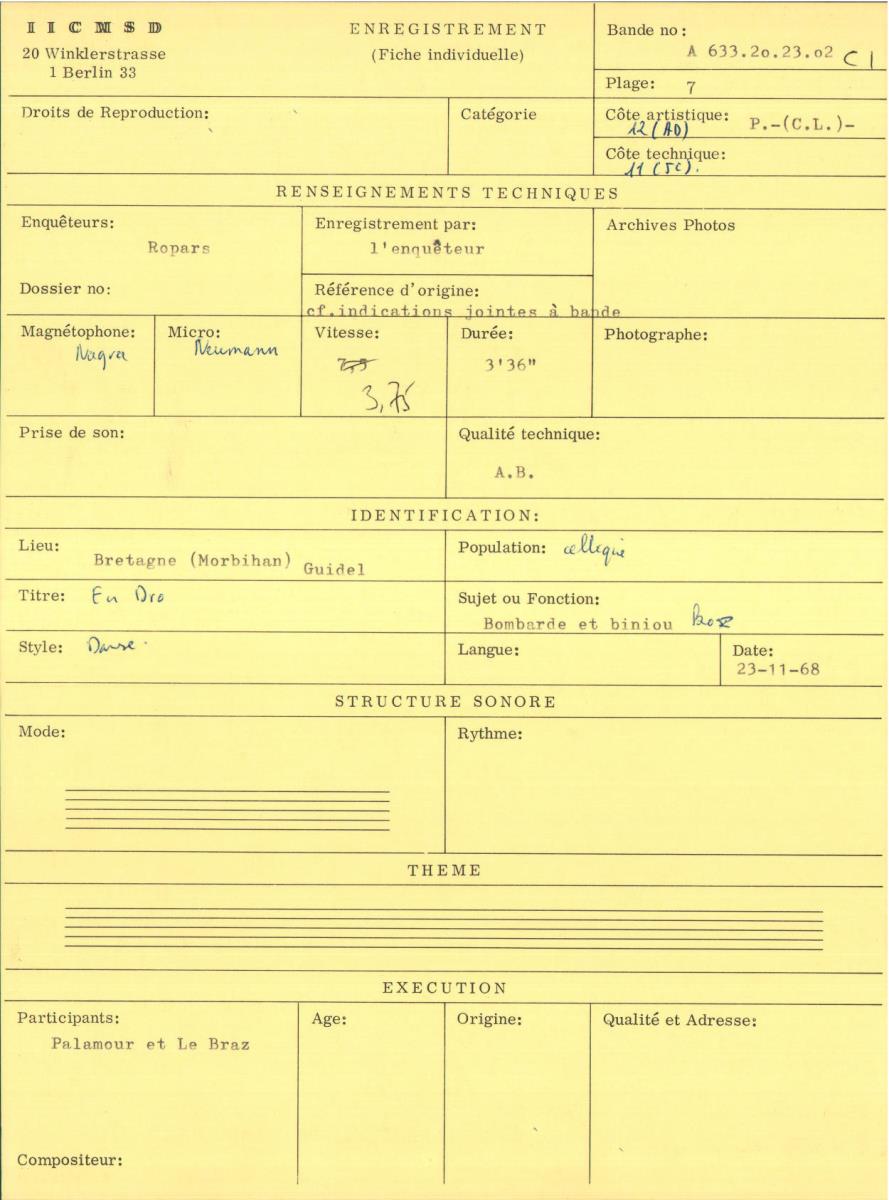 IICMSD
20 Winklerstrasse
1 Berlin 33
ENREGISTREMENT
(Fiche individuelle)
Bande no :
A 633.2o.23.o2 C1
Plage: 7
Droits de Reproduction:
Catégorie
Côte artistique:
12 (AD) P.-(C.L.)-
Côte technique:
11 (SC).
RENSEIGNEMENTS TECHNIQUES
Enquêteurs:
Ropars
Dossier no:
Enregistrement par:
l'enquêteur
Référence d'origine:
cf.indications jointes à bande
Archives Photos
Magnétophone:
Nagra
Micro:
Neumann
Vitesse:
7,5
3,75
Durée:
3'36"
Photographe:
Prise de son:
Qualité technique:
A.B.
IDENTIFICATION:
Lieu:
Bretagne (Morbihan) Guidel
Population: celtique
Titre: En Dro
Sujet ou Fonction:
Bombarde et biniou koz
Style: Danse
Langue:
Date:
23-11-68
STRUCTURE SONORE
Mode:
Rythme:
THEME
EXECUTION
Participants:
Palamour et Le Braz
Age:
Origine:
Qualité et Adresse:
Compositeur: